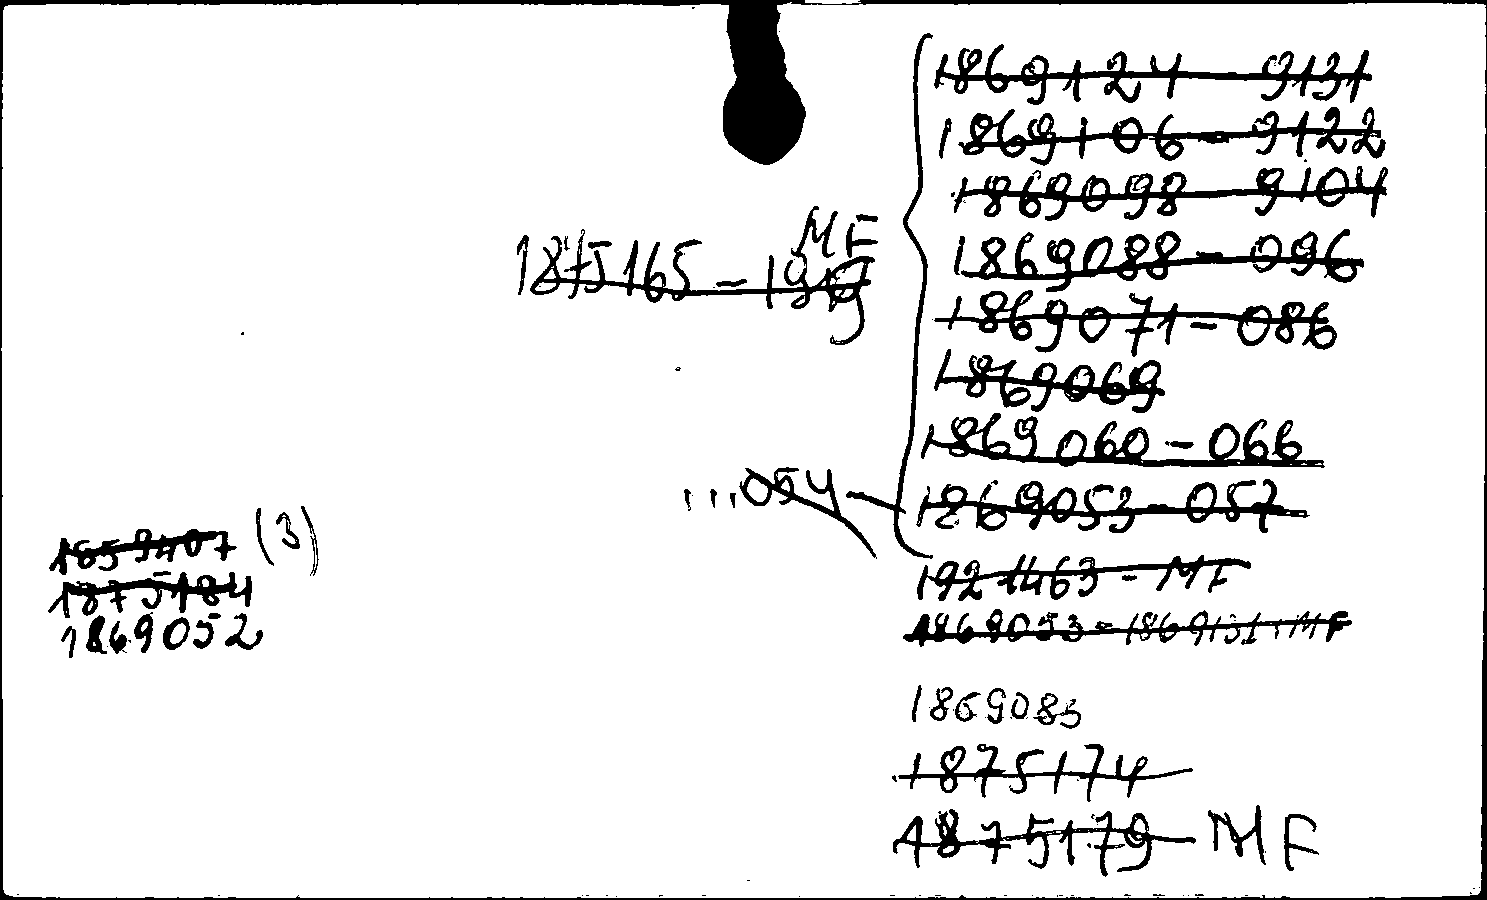 1869124 - 9131
1869106 - 9122
1869098 - 9104
MF
1875165 - 199
1869088 - 096
1869071 - 086
1869069
1869060 - 066
...054 - 1869053 - 057
1859407 (3)
1875184
1869052
1921463 - MF
1869053 - 1869131 : MF
1869083
1875174
1875179 - MF